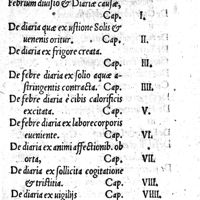 Febrium diuisio & Diariæ causæ,
Cap. I.
De diaria quæ ex ustione Solis &
uenenis oritur. Cap. II.
De diaria ex frigore creata.
Cap. III.
De febre diaria ex solio aquæ a-
stringentis contracta. Cap. IIII.
De febre diaria è cibis calorificis
excitata. Cap. V.
De febre diaria ex labore corporis
eueniente. Cap. VI.
De diaria ex animi affectionib. ob
orta, Cap. VII.
De diaria ex sollicita cogitatione
& tristitia. Cap. VIII.
De diaria ex uigilijs Cap. VIIII.